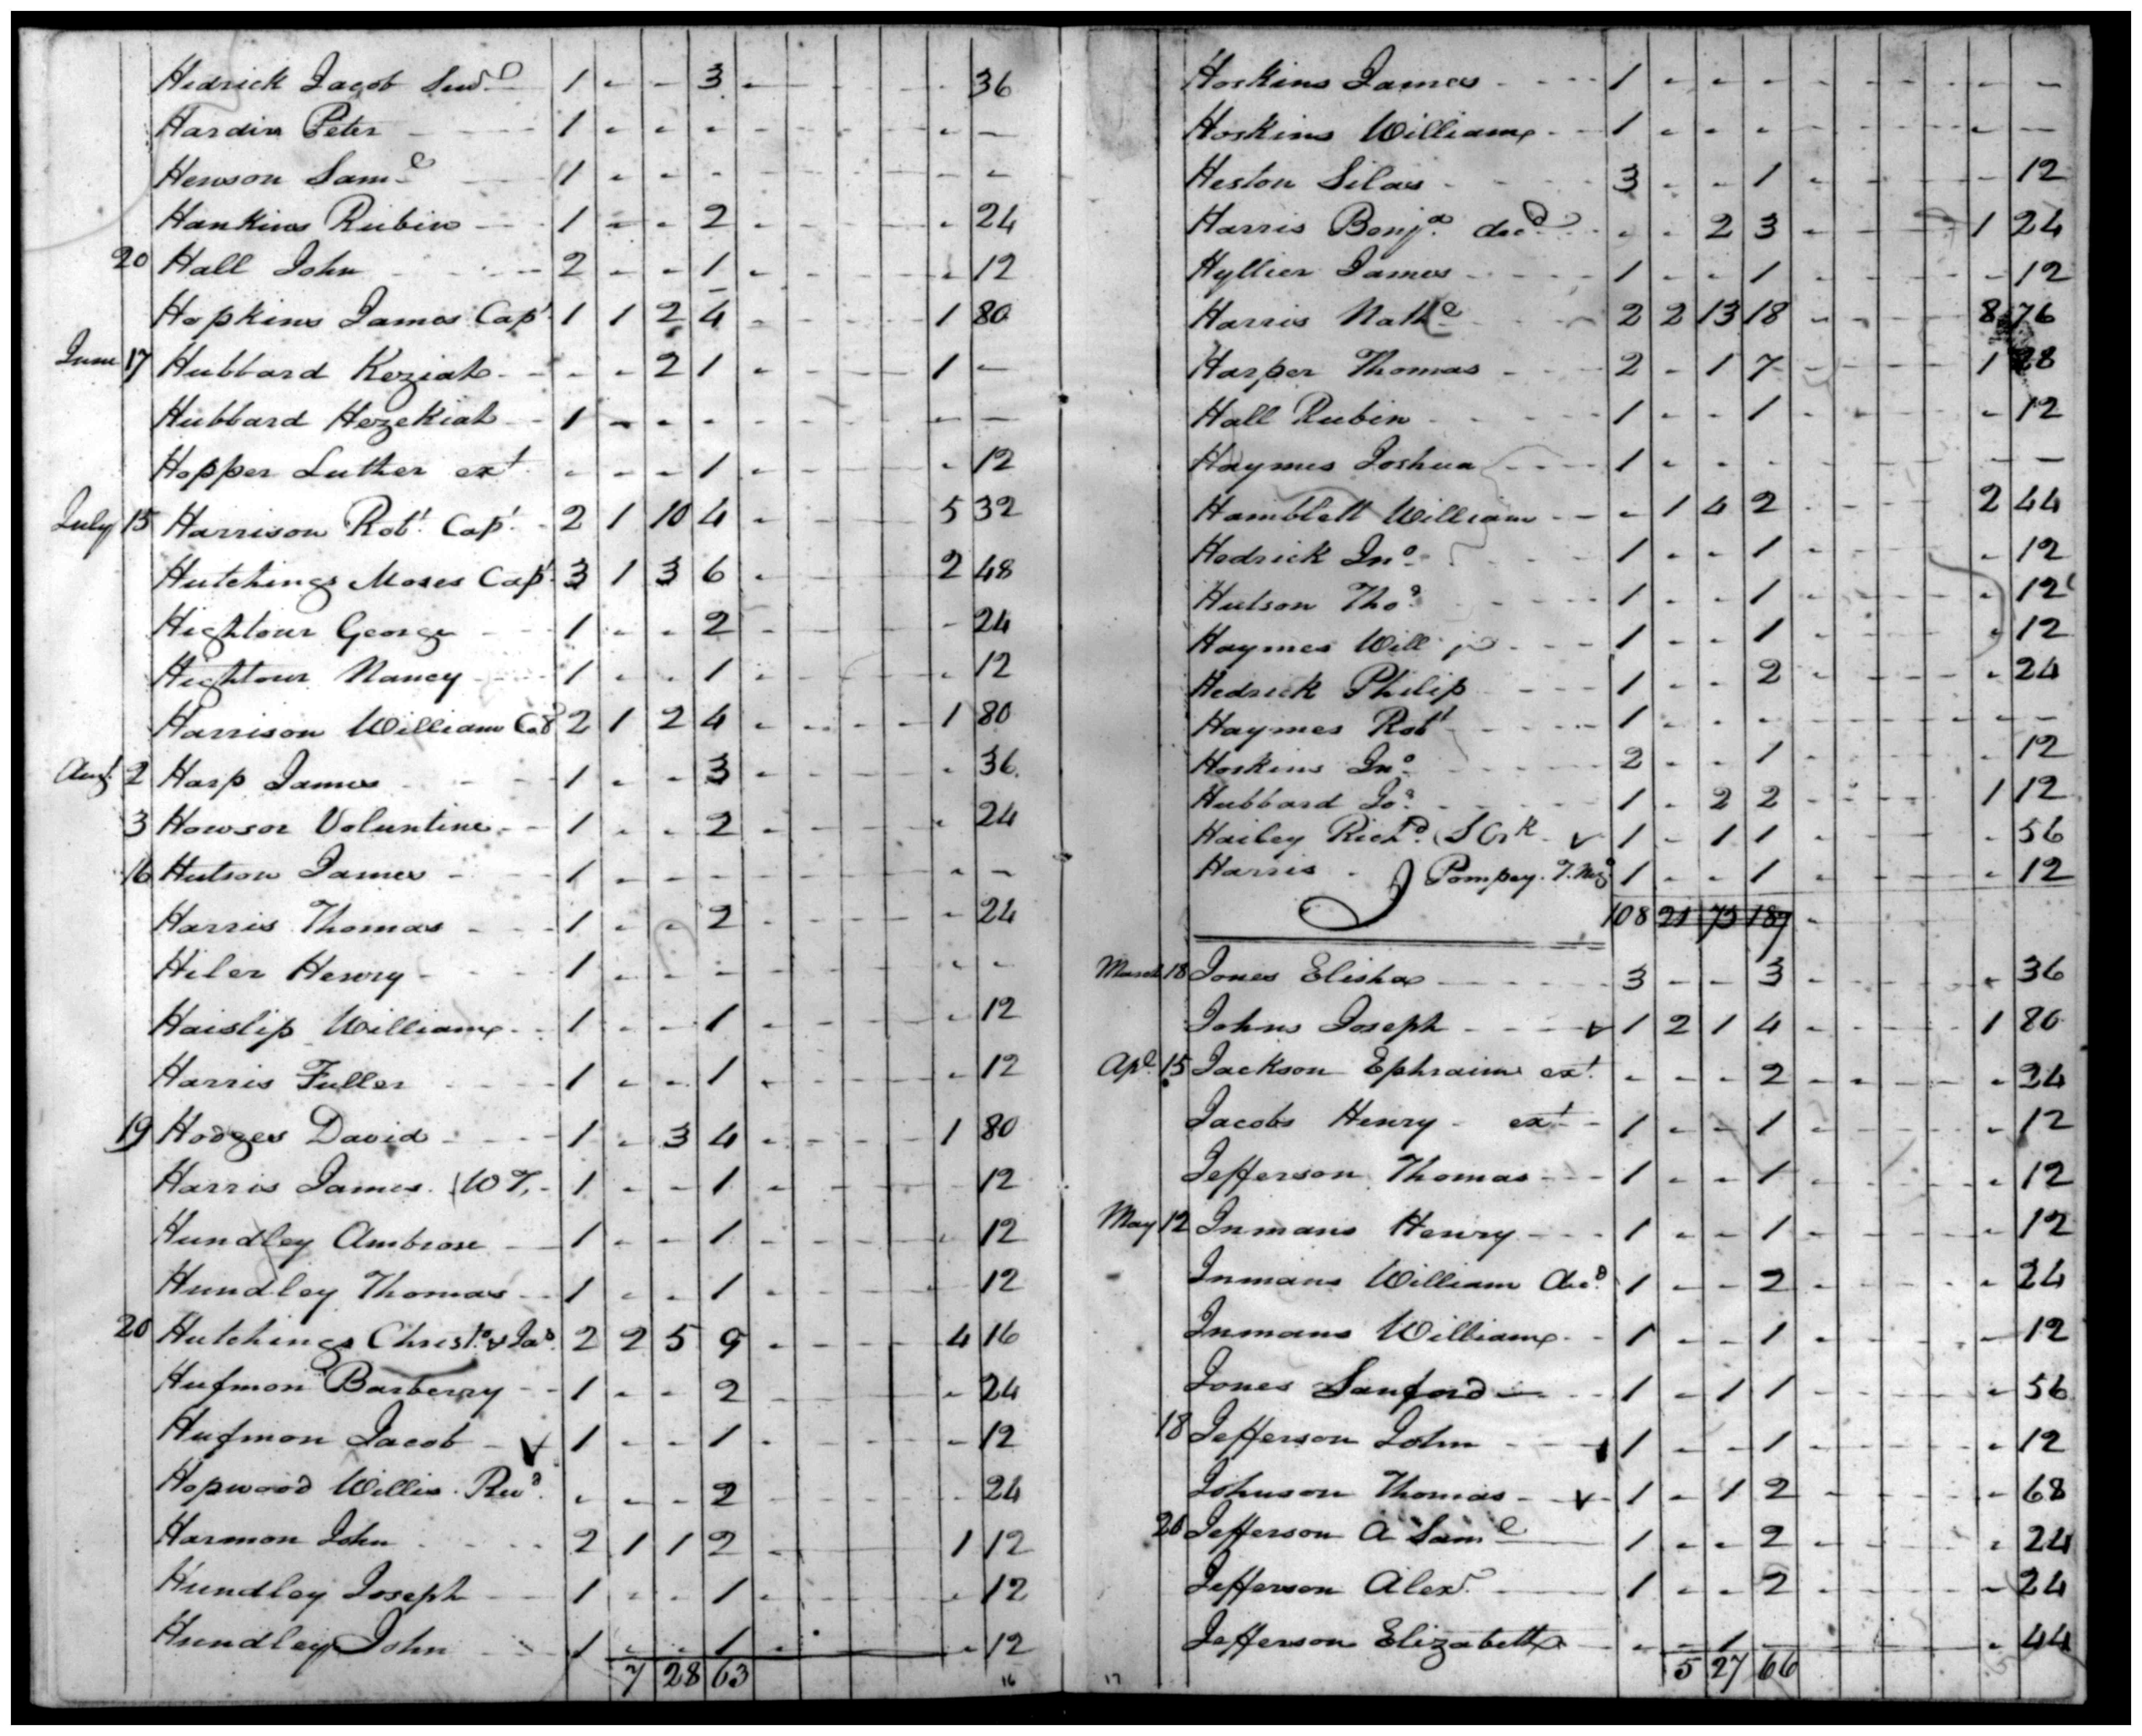 Hedrick Jacob Sen.r 1 - - 3 - - - - - 36
Hardin Peter 1 - - - - - - - - -
Henson Sam.l 1 - - - - - - - - -
Hankins Rubin 1 - - 2 - - - - - 24
20 Hall John 2 - - 1 - - - - - 12
Hopkins James Cap.t 1 1 2 4 - - - - 1 80
June 17 Hubbard Keziah - - 2 1 - - - - 1 -
Hubbard Hezekiah 1 - - - - - - - - -
Hopper Luther ex.t - - - 1 - - - - - 12
July 15 Harrison Rob.t Cap.t 2 1 10 4 - - - - 5 32
Hutchings Moses Cap.t 3 1 3 6 - - - - 2 48
Hightour George 1 - - 2 - - - - - 24
Hightour Nancy 1 - - 1 - - - - - 12
Harrison William 2 1 2 4 - - - - 1 80
Aug.t 2 Harp James 1 - - 3 - - - - - 36
3 Howson Voluntine 1 - - 2 - - - - - 24
16 Hutson James 1 - - - - - - - - -
Harris Thomas 1 - - 2 - - - - - 24
Hiler Henry 1 - - - - - - - - -
Haislip William 1 - - 1 - - - - - 12
Harris Fuller 1 - - 1 - - - - - 12
19 Hodges David 1 - 3 4 - - - - 1 80
Harris James (W T. 1 - - 1 - - - - - 12
Hundley Ambrose 1 - - 1 - - - - - 12
Hundley Thomas 1 - - 1 - - - - - 12
20 Hutchings Christ.o & Ja.s 2 2 5 9 - - - - 4 16
Hufmon Barberry 1 - - 2 - - - - - 24
Hufmon Jacob 1 - - 1 - - - - - 12
Hopwood Willis Rev.d - - - 2 - - - - - 24
Harmon John 2 1 1 2 - - - - 1 12
Hundley Joseph 1 - - 1 - - - - - 12
Hundley John 1 - - 1 - - - - - 12
7 28 63
16
Hoskins James 1 - - - - - - - - -
Hoskins William 1 - - - - - - - - -
Heston Silas 3 - - 1 - - - - - 12
Harris Benj.a dec.d - - 2 3 - - - - 1 24
Hyllier James 1 - - 1 - - - - - 12
Harris Nath.l 2 2 13 18 - - - - 8 76
Harper Thomas 2 - 1 7 - - - - 1 28
Hall Rubin 1 - - 1 - - - - - 12
Haymes Joshua 1 - - - - - - - - -
Hamblett William - 1 4 2 - - - - 2 44
Hedrick Jn.o 1 - - 1 - - - - - 12
Hutson Tho.s 1 - - 1 - - - - - 12
Haymes Will j.r 1 - - 1 - - - - - 12
Hedrick Philip 1 - - 2 - - - - - 24
Haymes Rob.t 1 - - - - - - - - -
Hoskins Jn.o 2 - - 1 - - - - - 12
Hubbard Jo.s 1 - 2 2 - - - - 1 12
Hailey Rich.d (S Crk 1 - 1 1 - - - - - 56
Harris Pompey F. Neg.o 1 - - 1 - - - - - 12
108 21 75 187
March 18 Jones Elisha 3 - - 3 - - - - - 36
Johns Joseph 1 2 1 4 - - - - 1 80
Ap.l 15 Jackson Ephraim ex.t - - - 2 - - - - - 24
Jacobs Henry ex.t 1 - - 1 - - - - - 12
Jefferson Thomas 1 - - 1 - - - - - 12
May 12 Inmans Henry 1 - - 1 - - - - - 12
Inmans William dec.d 1 - - 2 - - - - - 24
Inmans William 1 - - 1 - - - - - 12
Jones Sanford 1 - 1 1 - - - - - 56
18 Jefferson John 1 - - 1 - - - - - 12
Johnson Thomas 1 - 1 2 - - - - - 68
20 Jefferson A Sam.l 1 - - 2 - - - - - 24
Jefferson Alex.r 1 - - 2 - - - - - 24
Jefferson Elizabeth - - 1 - - - - - - 44
5 27 66
17